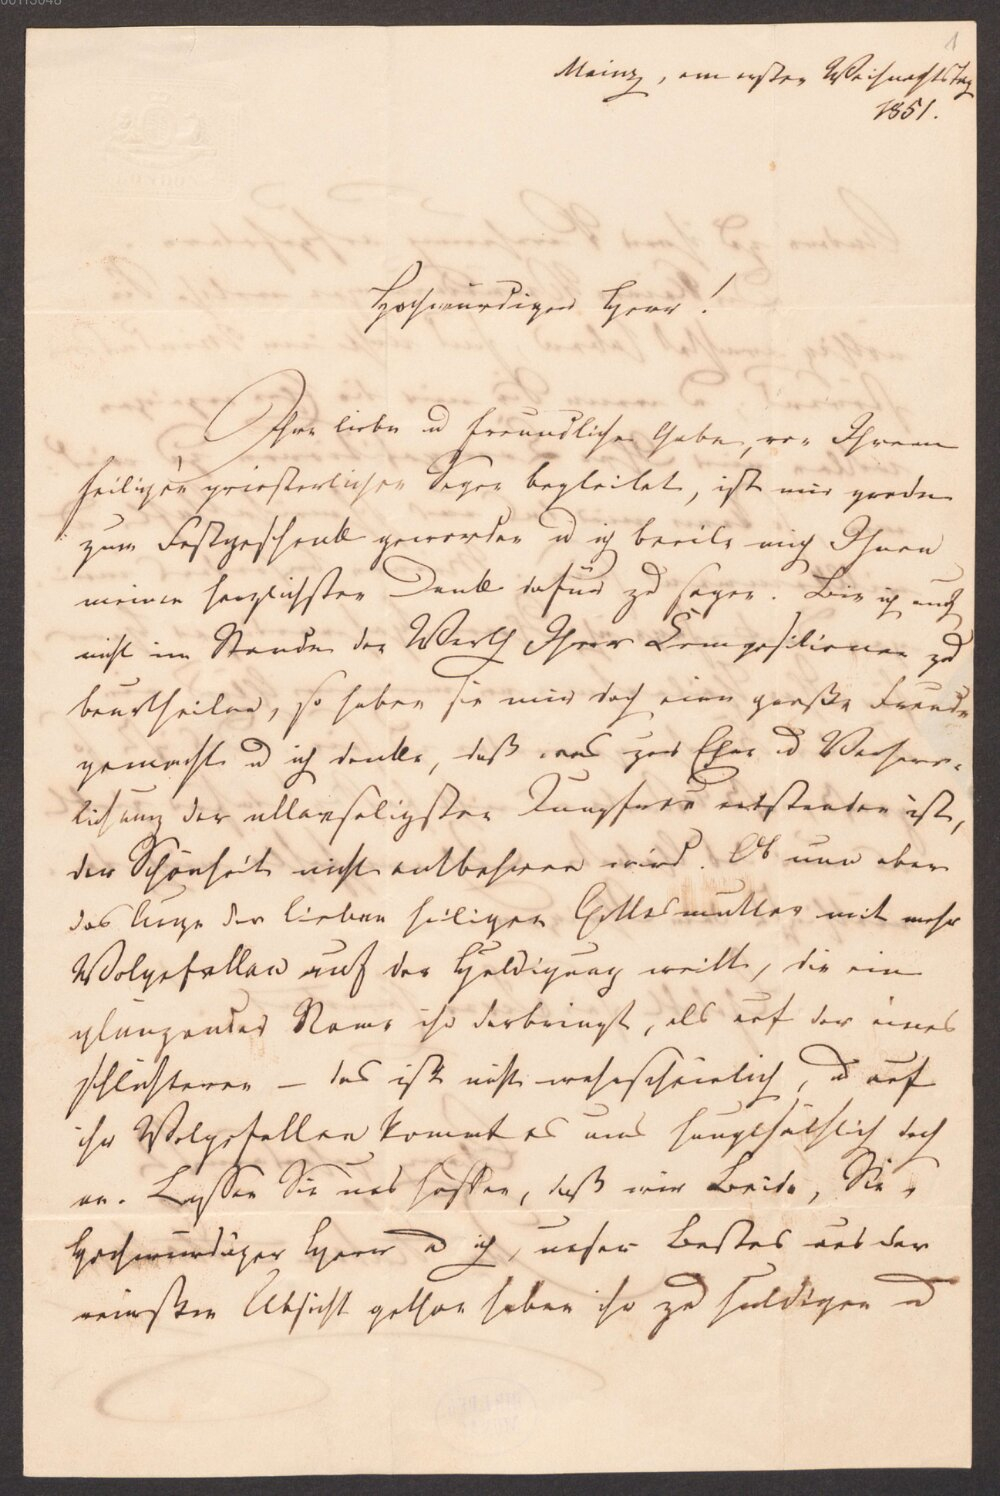 00113048
1
Mainz, am ersten Weihnachtstag
1851.
Hochwürdiger Herr!
Ihre liebe u freundliche Gabe, von Ihrem
heiligen priesterlichen Segen begleitet, ist mir grade
zum Festgeschenk geworden u ich beeile mich Ihnen
meinen herzlichsten Dank dafür zu sagen. Bin ich auch
nicht im Stande den Werth Ihrer Compositionen zu
beurtheilen, so haben sie mir doch eine große Freude
gemacht u ich denke, daß was zur Ehre u Verherr-
lichung der allerseligsten Jungfrau entstanden ist,
der Schönheit nicht entbehren wird. Ob nun aber
das Auge der lieben heiligen Gottesmutter mit mehr
Wolgefallen auf der Huldigung weilt, die ein
glänzender Name ihr darbringt, als auf der eines
schlichteren – das ist nicht wahrscheinlich, u auf
ihr Wolgefallen kommt es uns hauptsächlich doch
an. Lassen Sie uns hoffen, daß wir Beide, Sie,
Hochwürdiger Herr u ich, unser Bestes aus der
reinsten Absicht gethan haben ihr zu huldigen u